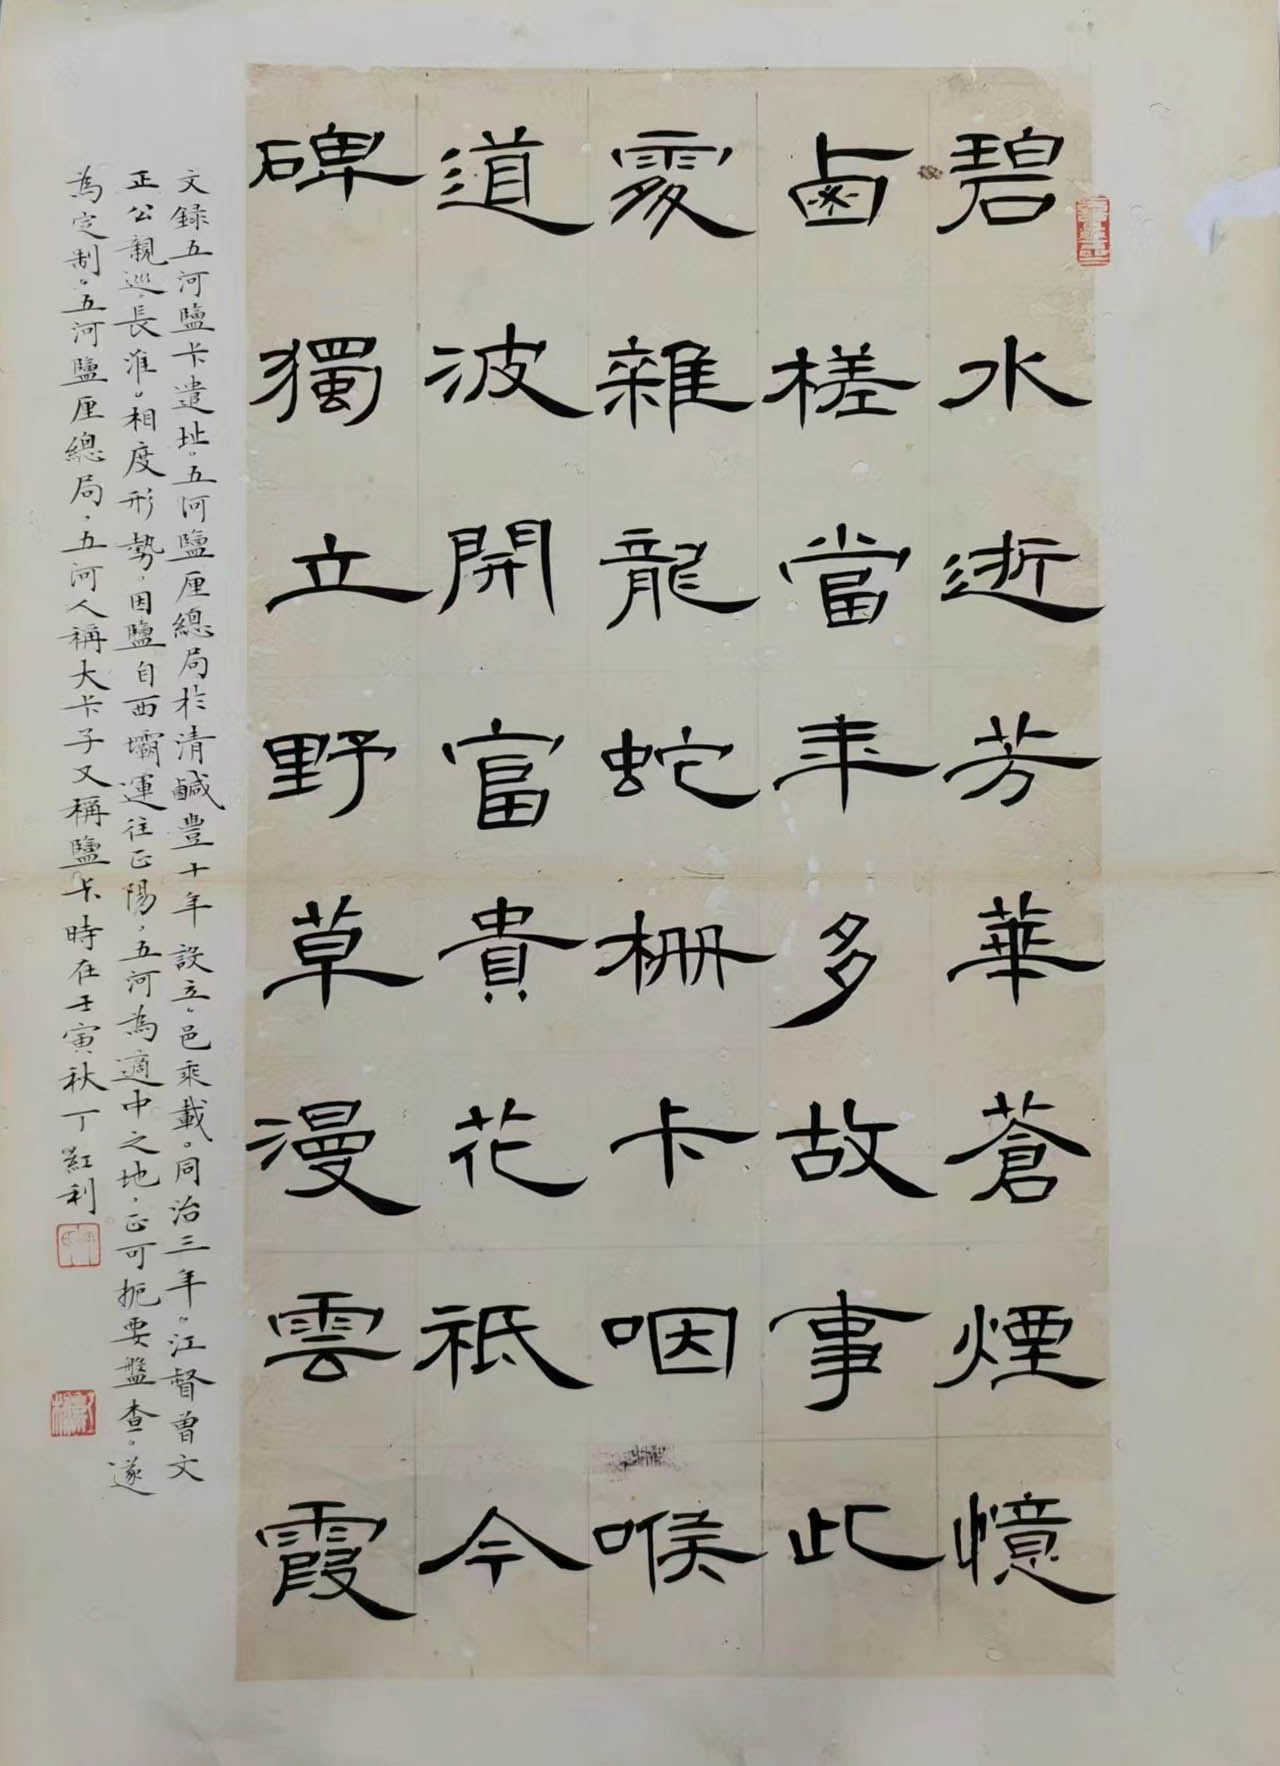 碧水逝芳華蒼煙憶
鹵槎當年多故事此
處雜龍蛇柵卡咽喉
道波開富貴花祗今
碑獨立野草漫雲霞
文録五河鹽卡遺址。五河鹽厘總局於清鹹豐十年設立。邑乘載。同治三年。江督曾文
正公親巡長淮。相度形勢。因鹽自西壩運往正陽，五河為適中之地，正可扼要盤查。遂
為定制。五河鹽厘總局，五河人稱大卡子又稱鹽卡時在壬寅秋丁紅利